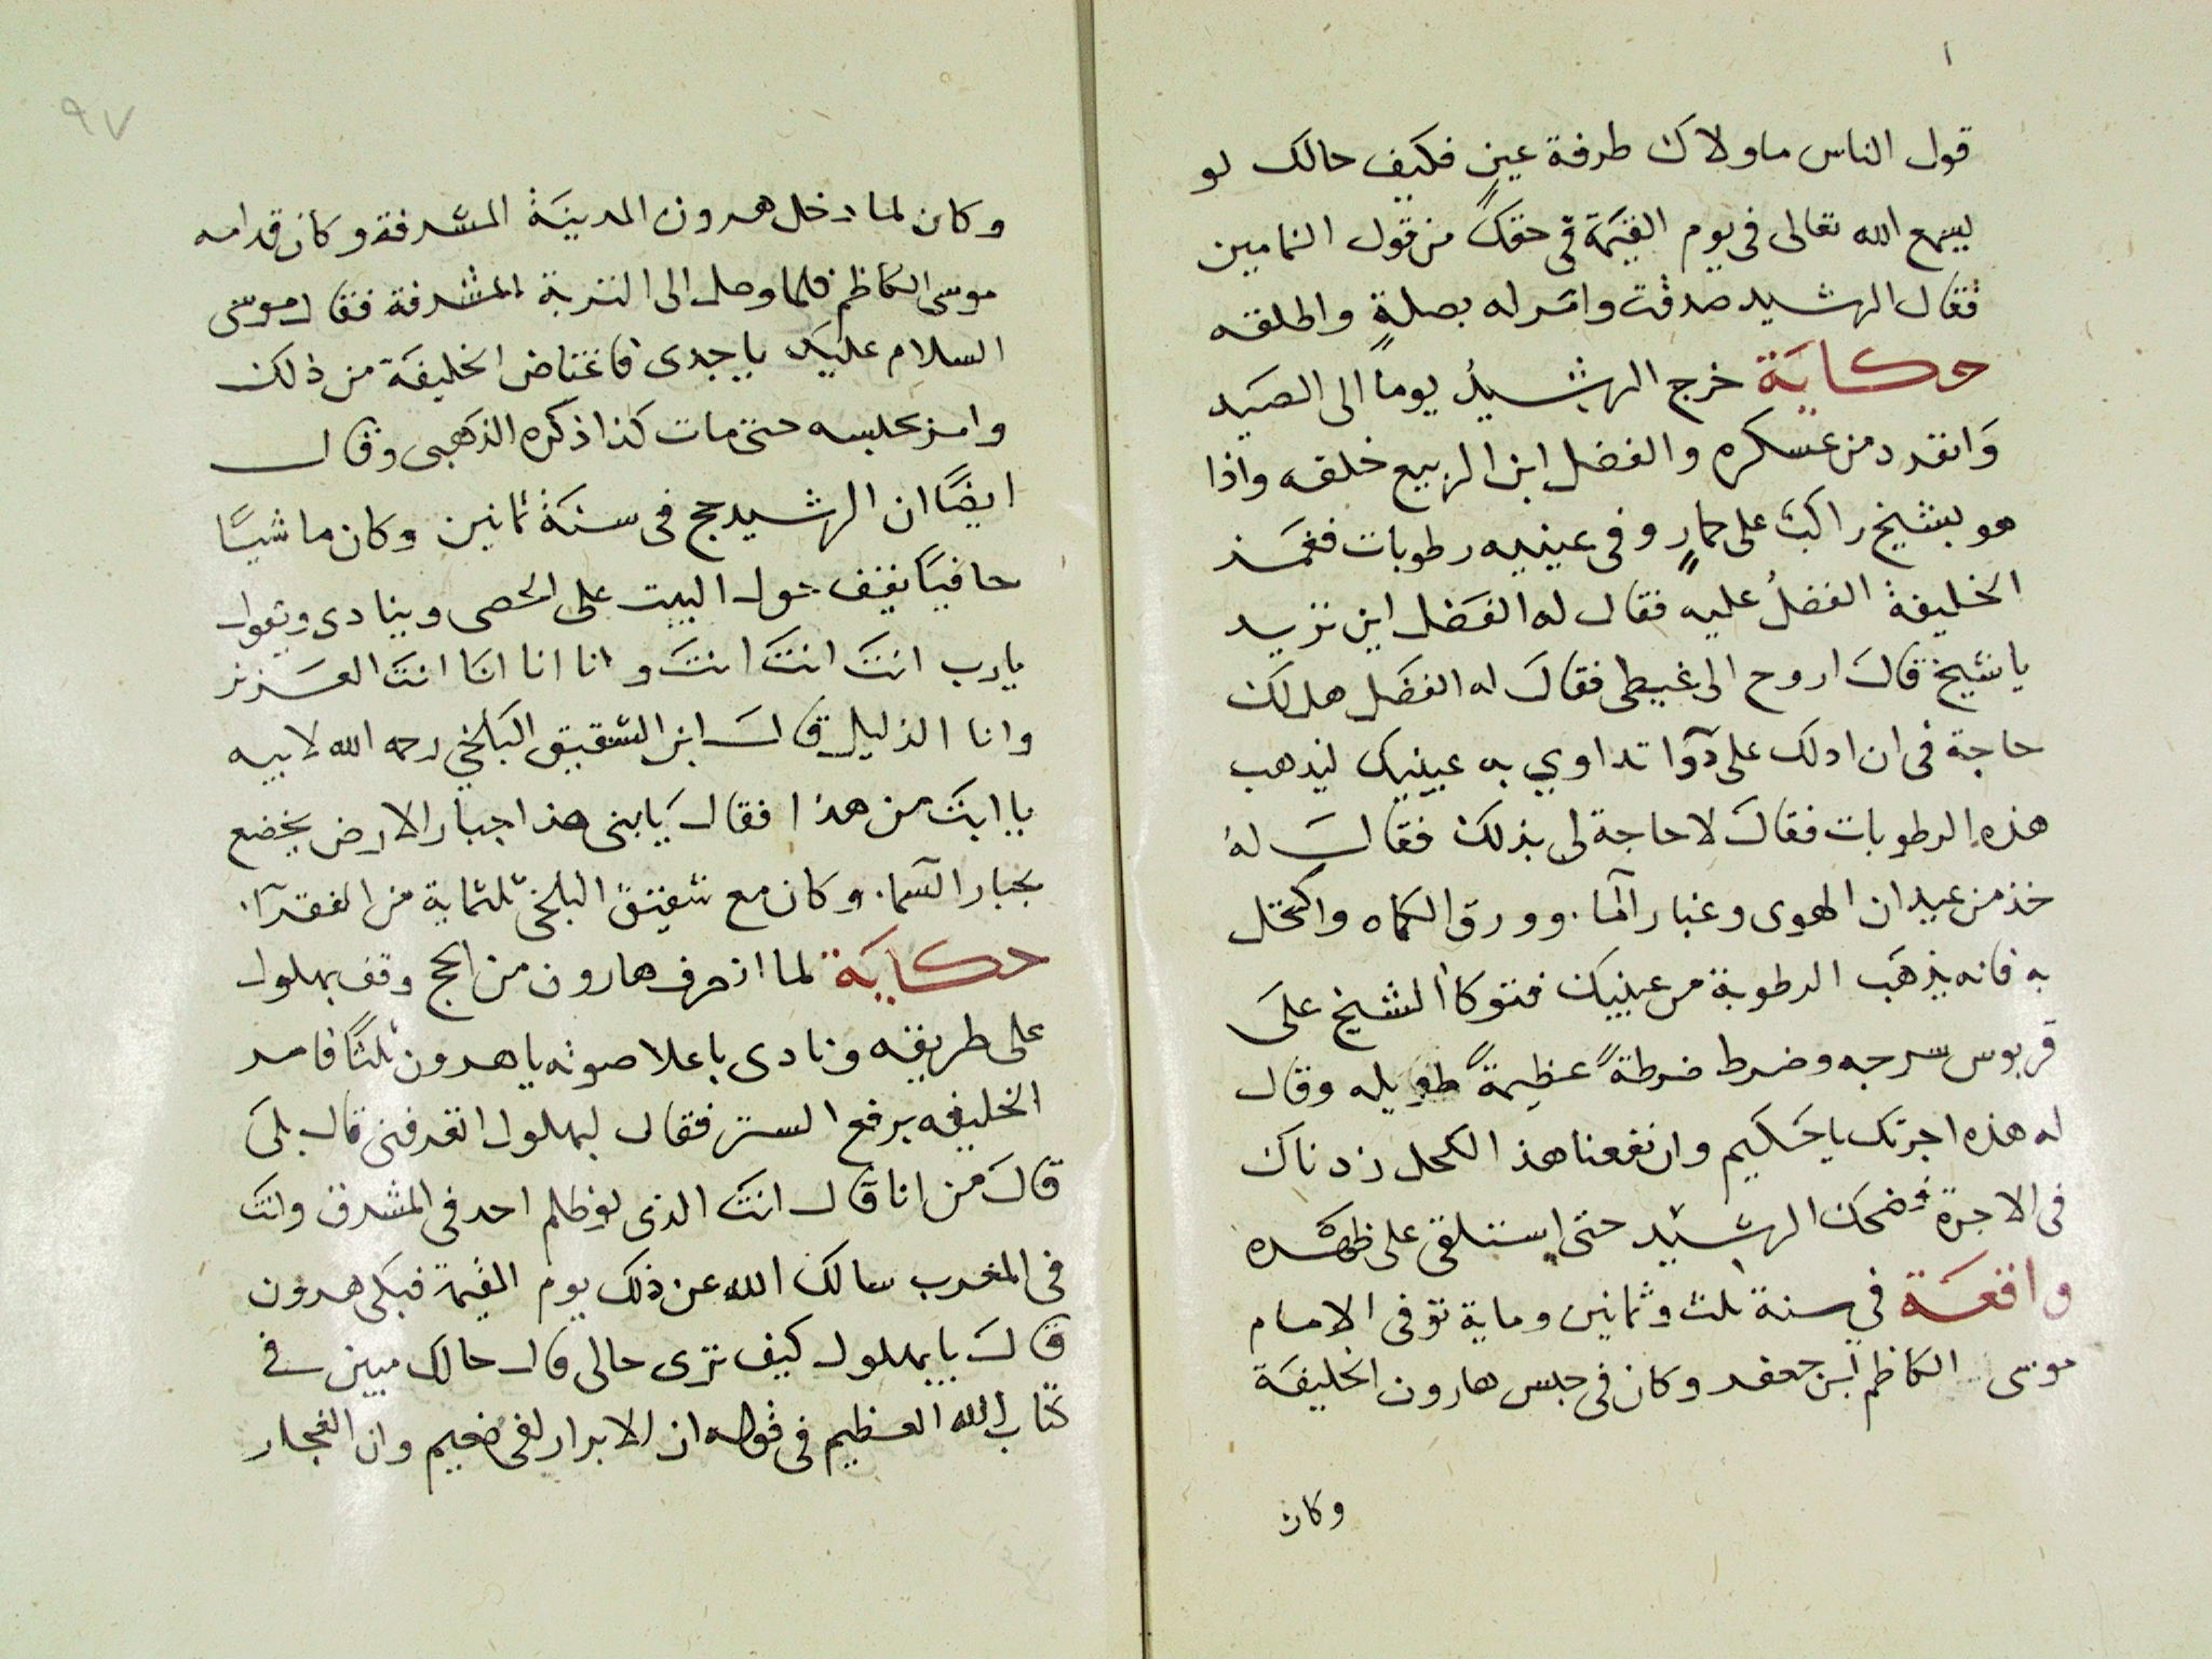 قول الناس ماولاك طرفة عين فكيف حالك لو
يسمع الله تعالى فى يوم القيمة فى حقك من قول النمامين
فقال الرشيد صدقت وامر له بصلةٍ واطلقه
حكاية خرج الرشيدُ يوماً الى الصيد
وَانفرد من عسكره والفضل ابن الربيع خلفه واذا
هو بشيخ راكبٌ على حمارٍ وفى عينيه رطوبات فغمز
الخليفة الفضلُ عليه فقال له الفضل اين تريد
يا شيخ قال اروح الى غيطى فقال له الفضل هل لك
حاجة فى ان ادلك على دوآ تداوي به عينيك ليذهب
هذه الرطوبات فقال لا حاجة لى بذلك فقال له
خذ من عيدان الهوى وغبار المآ وورق الكماه واكتحل
به فانه يذهب الرطوبة من عينيك فتوكا الشيخ على
قربوس سرجه وضرط ضرطةً عظيمةً طويله وقال
له هذه اجرتك يا حكيم وان نفعنا هذ الكحل زدناك
فى الاجرة فضحك الرشيد حتى استلقى على ظهره
واقعة في سنة ثلث وثمانين وماية توفى الامام
موسى الكاظم ابن جعفر وكان فى حبس هارون الخليفة
وكان
٩٧
وكان لما دخل هرون المدينة المشرفة وكان قدامه
موسى الكاظم فلما وصل الى التربة المشرفة فقال موسى
السلام عليك يا جدى فاغتاض الخليفة من ذلك
وامر بحبسه حتى مات كذا ذكره الذهبى وقال
ايضًا ان الرشيد حج فى سنة ثمانين وكان ماشيًا
حافيًا يقف حول البيت على الحصى وينادى ويقول
يارب انتَ انتَ انتَ وانا انا انا انتَ العزيز
وانا الذليل قال ابن الشقيق البلخي رحمه الله لابيه
يا ابت من هذا فقال يا بنى هذا جبار الارض يخضع
بجبار السمآ وكان مع شقيق البلخى ثلثماية من الفقرآ
حكاية لما انصرف هارون من الحج وقف بهلول
على طريقه ونادى باعلا صوته يا هرون ثلثًا فامر
الخليفه برفع الستر فقال لبهلول اتعرفنى قال بلى
قال من انا قال انت الذى لو ظلم احد فى المشرق وانت
فى المغرب سالك الله عن ذلك يوم القيمة فبكى هرون
قال يا بهلول كيف ترى حالى قال حالك مبين فى
كتاب الله العظيم فى قوله ان الابرار لفى نعيم وان الفجار